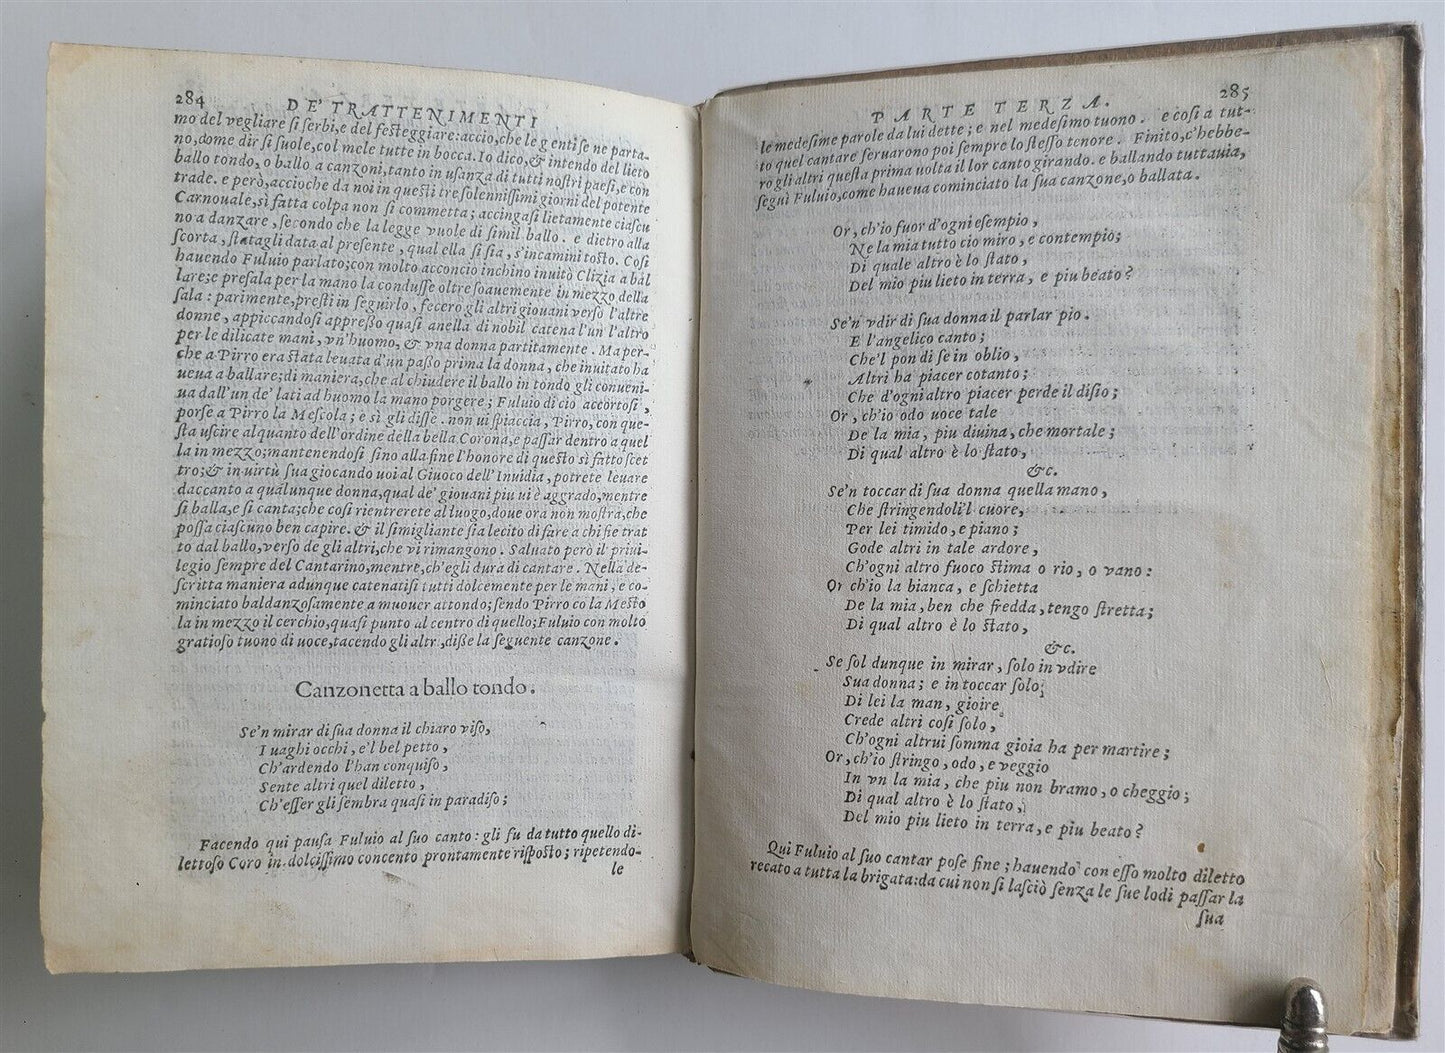 284
DE' TRATTENIMENTI
mo del vegliare si serbi, e del festeggiare: accio, che le genti se ne parta-
no, come dir si suole, col mele tutte in bocca. Io dico, & intendo del lieto
ballo tondo, o ballo a canzoni, tanto in usanza di tutti nostri paesi, e con
trade. e però, accioche da noi in questi tre solennissimi giorni del potente
Carnouale, sì fatta colpa non si commetta; accingasi lietamente ciascu
no a danzare, secondo che la legge vuole di simil ballo. e dietro alla
scorta, statagli data al presente, qual ella si sia, s'incamini tosto. Così
hauendo Fuluio parlato; con molto acconcio inchino inuitò Clizia a bal
lare; e presala per la mano la condusse oltre soauemente in mezzo della
sala: parimente, presti in seguirlo, fecero gli altri giouani verso l'altre
donne, appiccandosi appresso quasi anella di nobil catena l'un l'altro
per le dilicate mani, vn'huomo, & vna donna partitamente. Ma per-
che a Pirro era stata leuata d'un passo prima la donna, che inuitato ha
ueua a ballare; di maniera, che al chiudere il ballo in tondo gli conueni-
ua dall'un de' lati ad huomo la mano porgere; Fuluio di cio accortosi,
porse a Pirro la Mescola; e sì gli disse. non ui spiaccia, Pirro, con que-
sta uscire alquanto dell'ordine della bella Corona, e passar dentro a quel
la in mezzo; mantenendosi sino alla fine l'honore di questo sì fatto scet
tro; & in virtù sua giocando uoi al Giuoco dell'Inuidia, potrete leuare
daccanto a qualunque donna, qual de' giouani piu ui è aggrado, mentre
si balla, e si canta; che così rientrerete al luogo, doue ora non mostra, che
possa ciascuno ben capire. & il simigliante sia lecito di fare a chi fie trat
to dal ballo, verso de gli altri, che vi rimangono. Saluato però il priui-
legio sempre del Cantarino, mentre, ch'egli dura di cantare. Nella de-
scritta maniera adunque catenatisi tutti dolcemente per le mani, e co-
minciato baldanzosamente a muouer attondo; sendo Pirro cō la Mesto
la in mezzo il cerchio, quasi punto al centro di quello; Fuluio con molto
gratioso tuono di uoce, tacendo gli altr, disse la seguente canzone.
Canzonetta a ballo tondo.
Se'n mirar di sua donna il chiaro viso,
I uaghi occhi, e'l bel petto,
Ch'ardendo l'han conquiso,
Sente altri quel diletto,
Ch'esser gli sembra quasi in paradiso;
Facendo qui pausa Fuluio al suo canto: gli fu da tutto quello di-
lettoso Coro in dolcissimo concento prontamente risposto; ripetendo-
le
PARTE TERZA.
285
le medesime parole da lui dette; e nel medesimo tuono. e così a tut-
to quel cantare seruarono poi sempre lo stesso tenore. Finito, c'hebbe-
ro gli altri questa prima uolta il lor canto girando. e ballando tuttauia,
seguì Fuluio, come haueua cominciato la sua canzone, o ballata.
Or, ch'io fuor d'ogni esempio,
Ne la mia tutto cio miro, e contempio;
Di quale altro è lo stato,
Del mio piu lieto in terra, e piu beato?
Se'n vdir di sua donna il parlar pio.
E l'angelico canto;
Che'l pon di se in oblio,
Altri ha piacer cotanto;
Che d'ogni altro piacer perde il disio;
Or, ch'io odo uoce tale
De la mia, piu diuina, che mortale;
Di qual altro è lo stato,
&c.
Se'n toccar di sua donna quella mano,
Che stringendoli'l cuore,
Per lei timido, e piano;
Gode altri in tale ardore,
Ch'ogni altro fuoco stima o rio, o vano:
Or ch'io la bianca, e schietta
De la mia, ben che fredda, tengo stretta;
Di qual altro è lo stato,
&c.
Se sol dunque in mirar, solo in vdire
Sua donna; e in toccar solo;
Di lei la man, gioire
Crede altri così solo,
Ch'ogni altrui somma gioia ha per martire;
Or, ch'io stringo, odo, e veggio
In vn la mia, che piu non bramo, o cheggio;
Di qual altro è lo stato,
Del mio piu lieto in terra, e piu beato?
Qui Fuluio al suo cantar pose fine; hauendo con esso molto diletto
recato a tutta la brigata: da cui non si lasciò senza le sue lodi passar la
sua